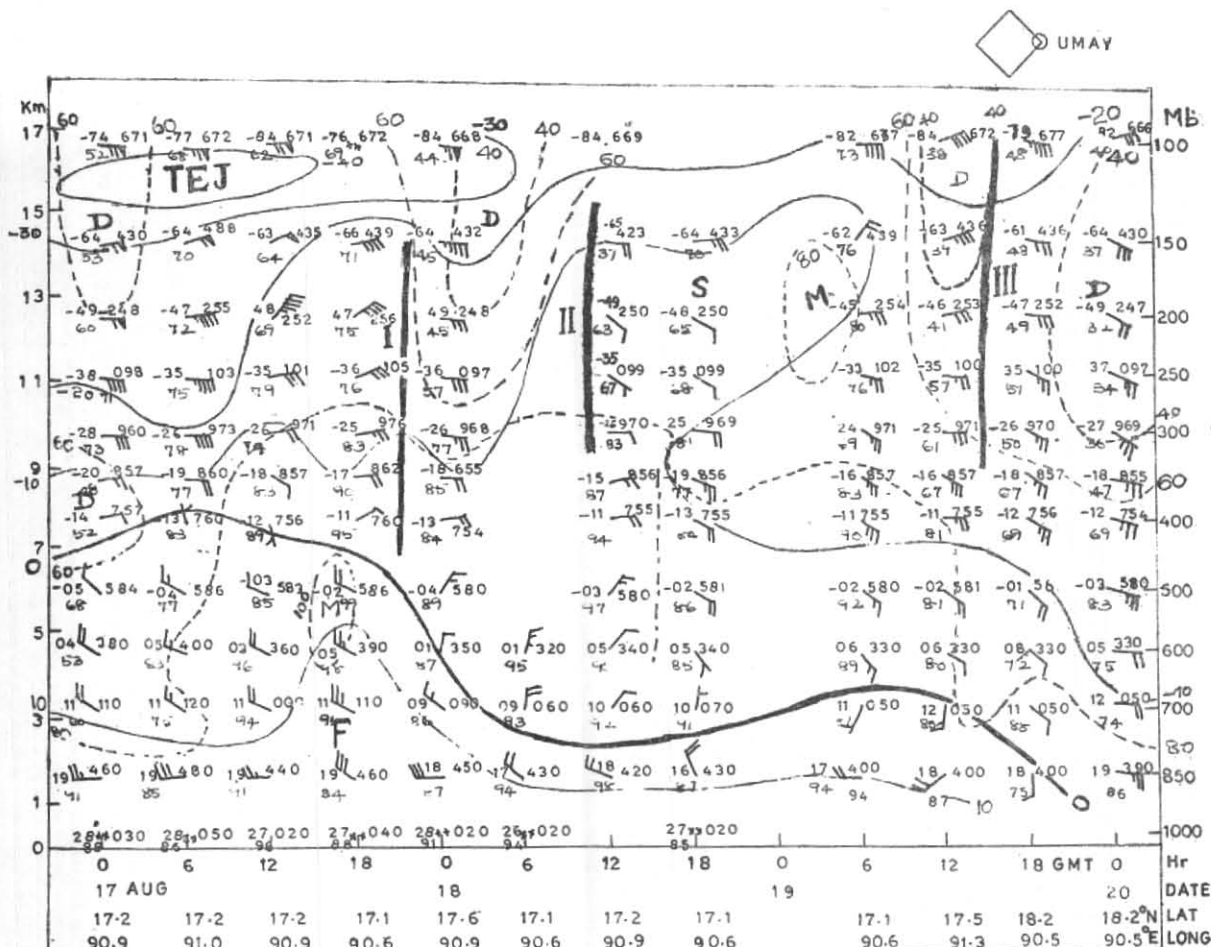 UMAY
Km 60 60 60 -30 40 60 40 40 -20 Mb
17 -74 671 -77 672 -84 671 -76 672 -84 668 -84 669 -82 677 -84 672 -79 677 92 666 100
52 68 62 69 -40 44 40 60 73 38 48 40
TEJ D
15 D D 150
-30 -64 430 -64 488 -63 435 -66 439 -64 432 -65 423 -64 433 -62 439 -63 436 -61 436 -64 430
53 70 64 71 45 37 76 37 48 37
80
13 I II S M III D
-49 248 -47 255 48 252 47 256 49 248 -49 250 -48 250 -45 254 -46 253 -47 252 -49 247 200
60 72 69 75 45 63 65 80 41 49 32
11 -38 098 -35 103 -35 101 -36 105 -36 097 -35 099 -35 099 -33 102 -35 100 35 100 37 097 250
-20 75 79 76 57 67 68 76 57 51 34
40
-28 960 -26 973 -26 971 -25 976 -26 968 970 -25 969 24 971 -25 971 -26 970 -27 969 300
73 78 83 77 83 81 59 61 50 36
9 -20 857 -19 860 -18 857 -17 862 -18 655 -15 856 19 856 -16 857 -16 857 -18 857 -18 855 60
-10 77 83 90 85 87 77 83 67 67 47
D
-14 757 -13 760 -12 756 -11 760 -13 754 -11 755 -13 755 -11 755 -11 755 -12 756 -12 754 400
52 83 89 95 84 94 84 90 81 69 69
7
0 60
-05 584 -04 586 -03 582 -02 586 -04 580 -03 580 -02 581 -02 580 -02 581 -01 56 -03 580 500
68 77 85 99 89 97 86 92 81 71 83
100 M
5 04 380 05 400 03 360 05 390 01 350 01 320 05 340 05 340 06 330 06 330 08 330 05 330 600
53 83 96 98 87 95 85 89 80 72 75
10 11 110 11 120 11 11 110 09 090 09 060 10 060 10 070 11 050 12 030 11 050 12 050 -10 700
3 80 75 94 94 86 83 92 91 88 74
F 80
19 460 19 480 19 440 19 460 18 450 17 430 18 420 16 430 17 400 18 400 18 400 19 390 850
91 85 91 84 87 94 98 87 94 94 87 10 75 0 86
1
28 030 28 050 27 020 27 040 28 020 26 020 27 020 1000
0 88 86 96 88 91 94 85
0 6 12 18 0 6 12 18 0 6 12 18 GMT 0 Hr
17 AUG 18 19 20 DATE
17.2 17.2 17.2 17.1 17.6 17.1 17.2 17.1 17.1 17.5 18.2 18.2°N LAT
90.9 91.0 90.9 90.6 90.9 90.6 90.9 90.6 90.6 91.3 90.5 90.5°E LONG